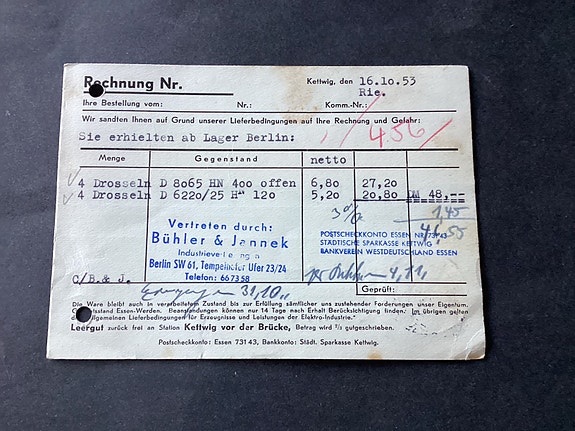 Rechnung Nr.
Kettwig, den 16.10.53
Rie.
Ihre Bestellung vom: Nr.: Komm.-Nr.:
Wir sandten Ihnen auf Grund unserer Lieferbedingungen auf Ihre Rechnung und Gefahr:
Sie erhielten ab Lager Berlin: 456
Menge Gegenstand netto
4 Drosseln D 8065 HN 400 offen 6,80 27,20
4 Drosseln D 6220/25 H" 120 5,20 20,80 DM 48,--
3% 1,45
46,55
Vertreten durch:
Bühler & Jannek
Berlin SW 61, Tempelhofer Ufer 23/24
Telefon: 66 73 58
POSTSCHECKKONTO ESSEN NR. 731 43
STÄDTISCHE SPARKASSE KETTWIG
BANKVEREIN WESTDEUTSCHLAND ESSEN
C/B.& J.
31/10.
Geprüft:
Die Ware bleibt auch in verarbeitetem Zustand bis zur Erfüllung sämtlicher uns zustehender Forderungen unser Eigentum.
Essen-Werden. Beanstandungen können nur 14 Tage nach Erhalt Berücksichtigung finden. Im übrigen gelten
die allgemeinen Lieferbedingungen für Erzeugnisse und Leistungen der Elektro-Industrie."
Leergut zurück frei an Station Kettwig vor der Brücke, Betrag wird ⅔ gutgeschrieben.
Postscheckkonto: Essen 731 43, Bankkonto: Städt. Sparkasse Kettwig.